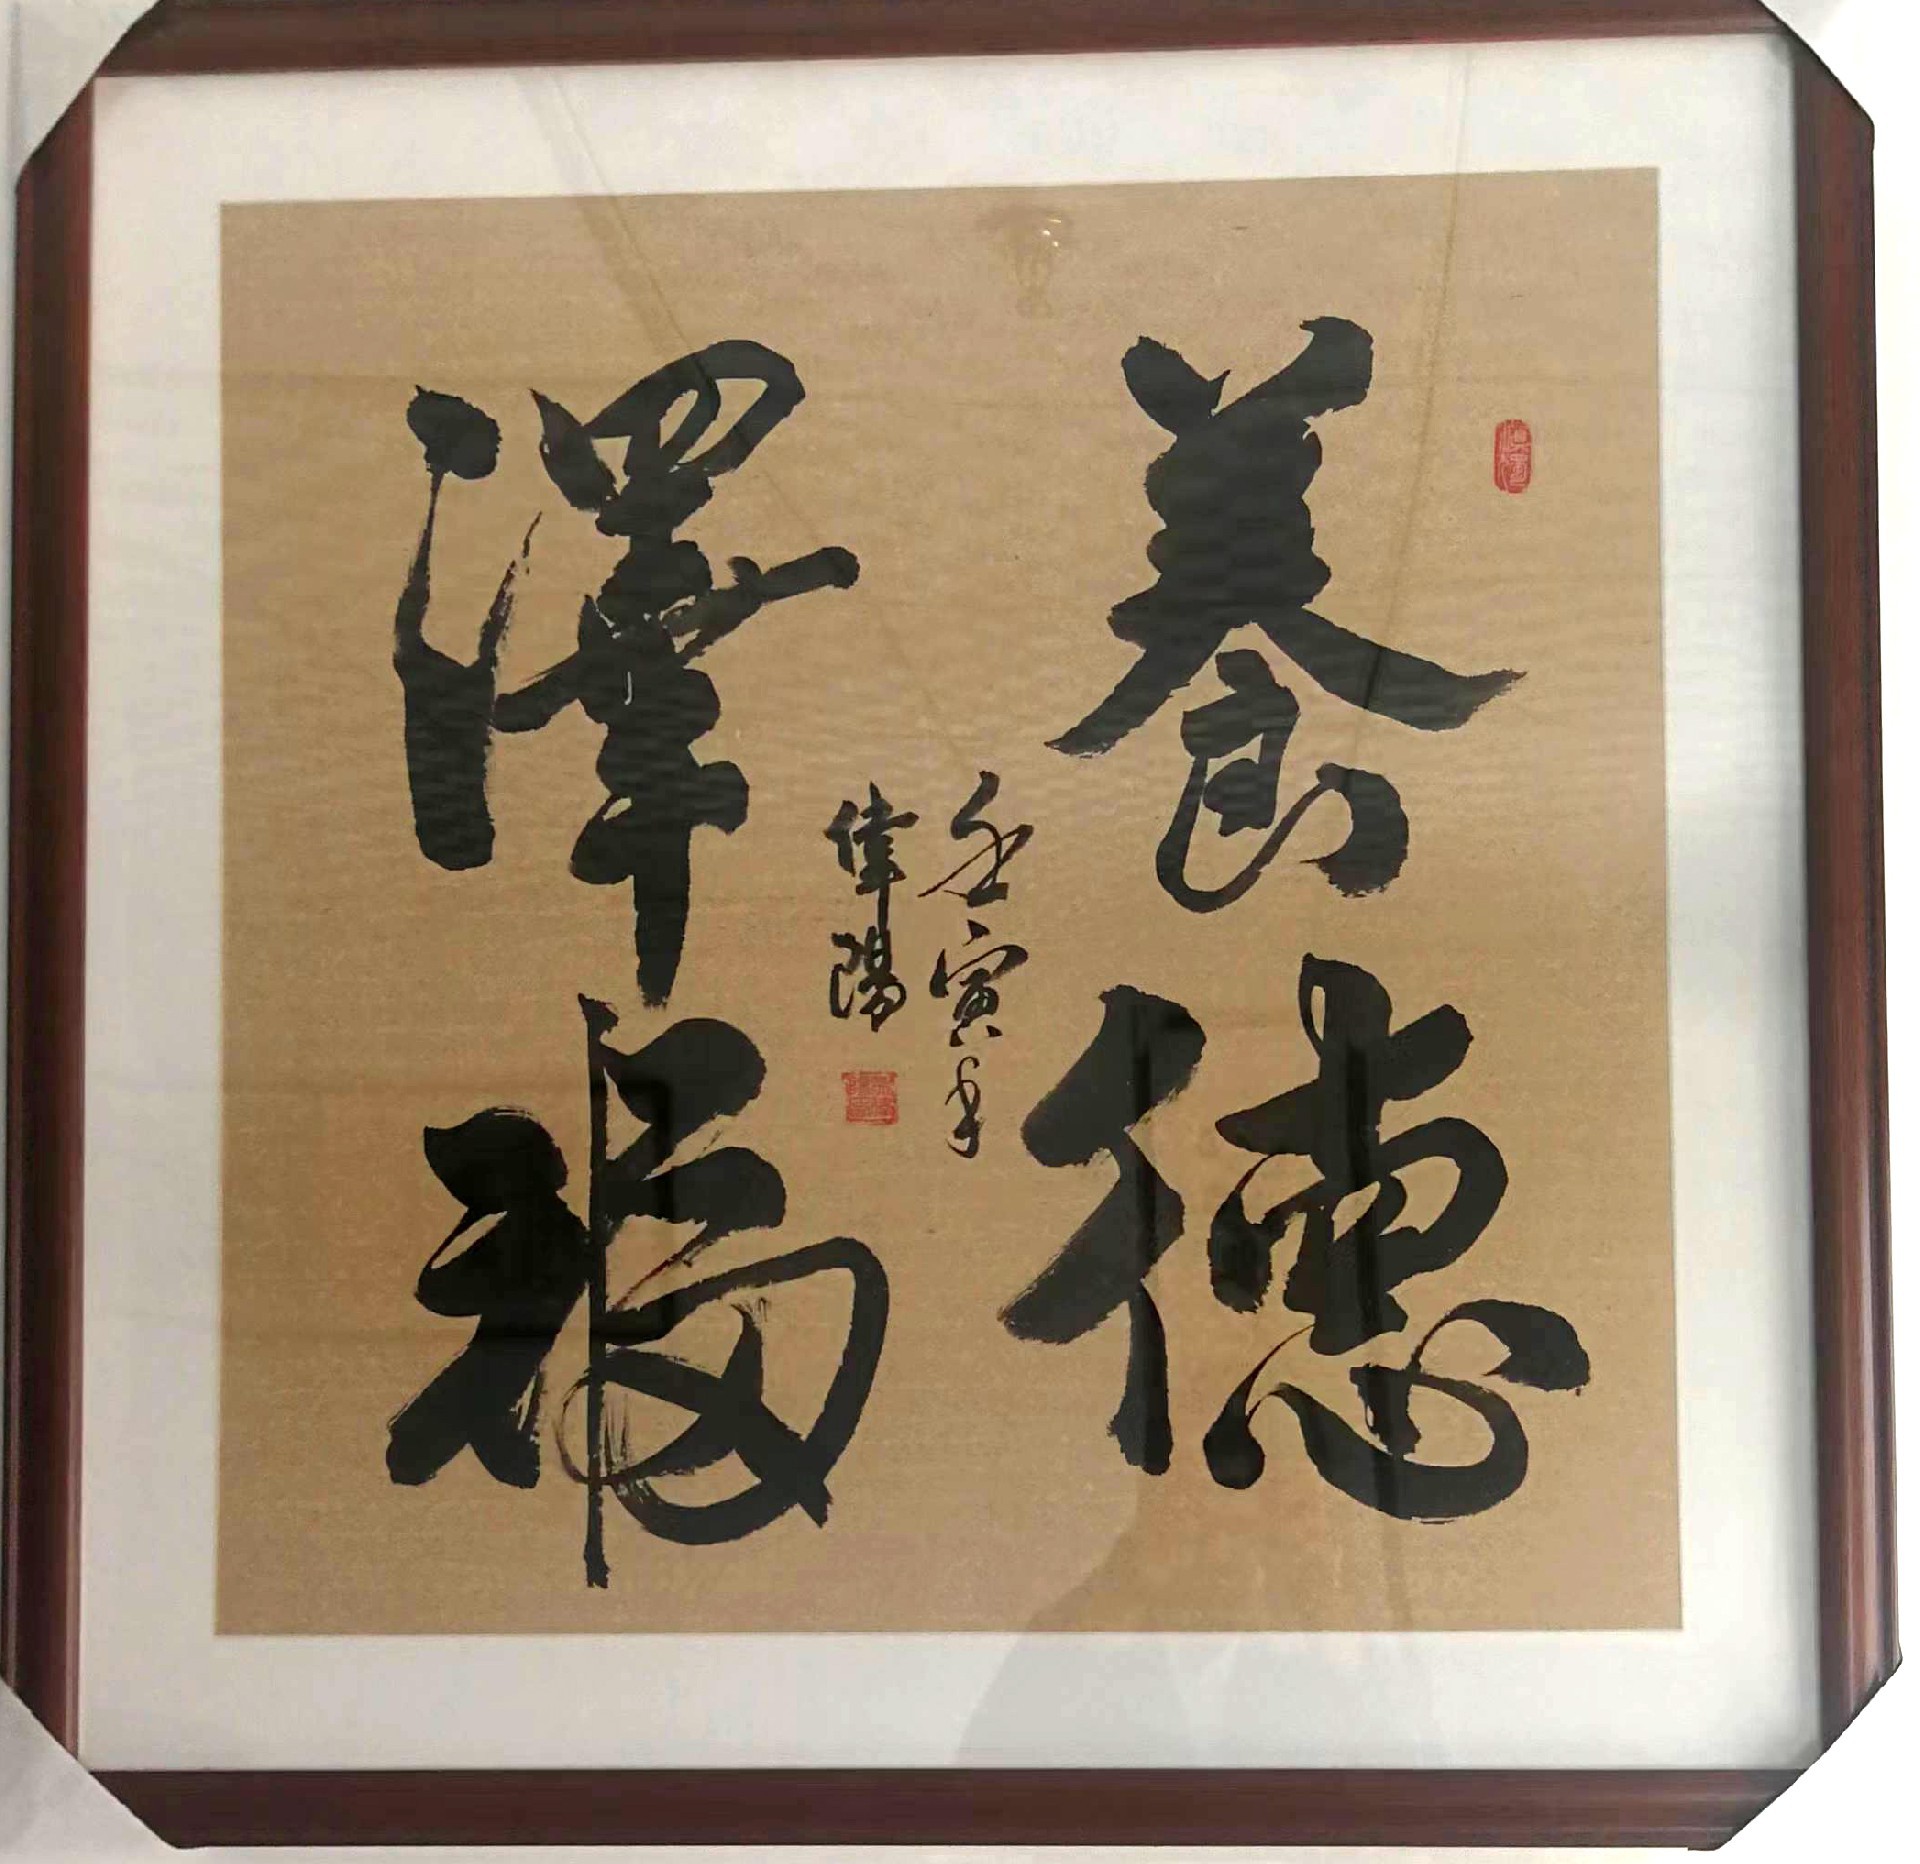 養德
澤福
壬寅年
偉陽